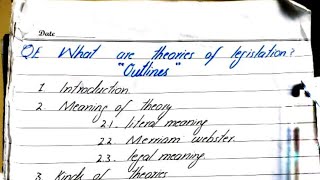 Date
Q1. What are theories of legislation?
"Outlines"
1 Introduction
2. Meaning of theory
2.1. literal meaning
2.2. Merriam webster
2.3. legal meaning
3. Kinds of theories